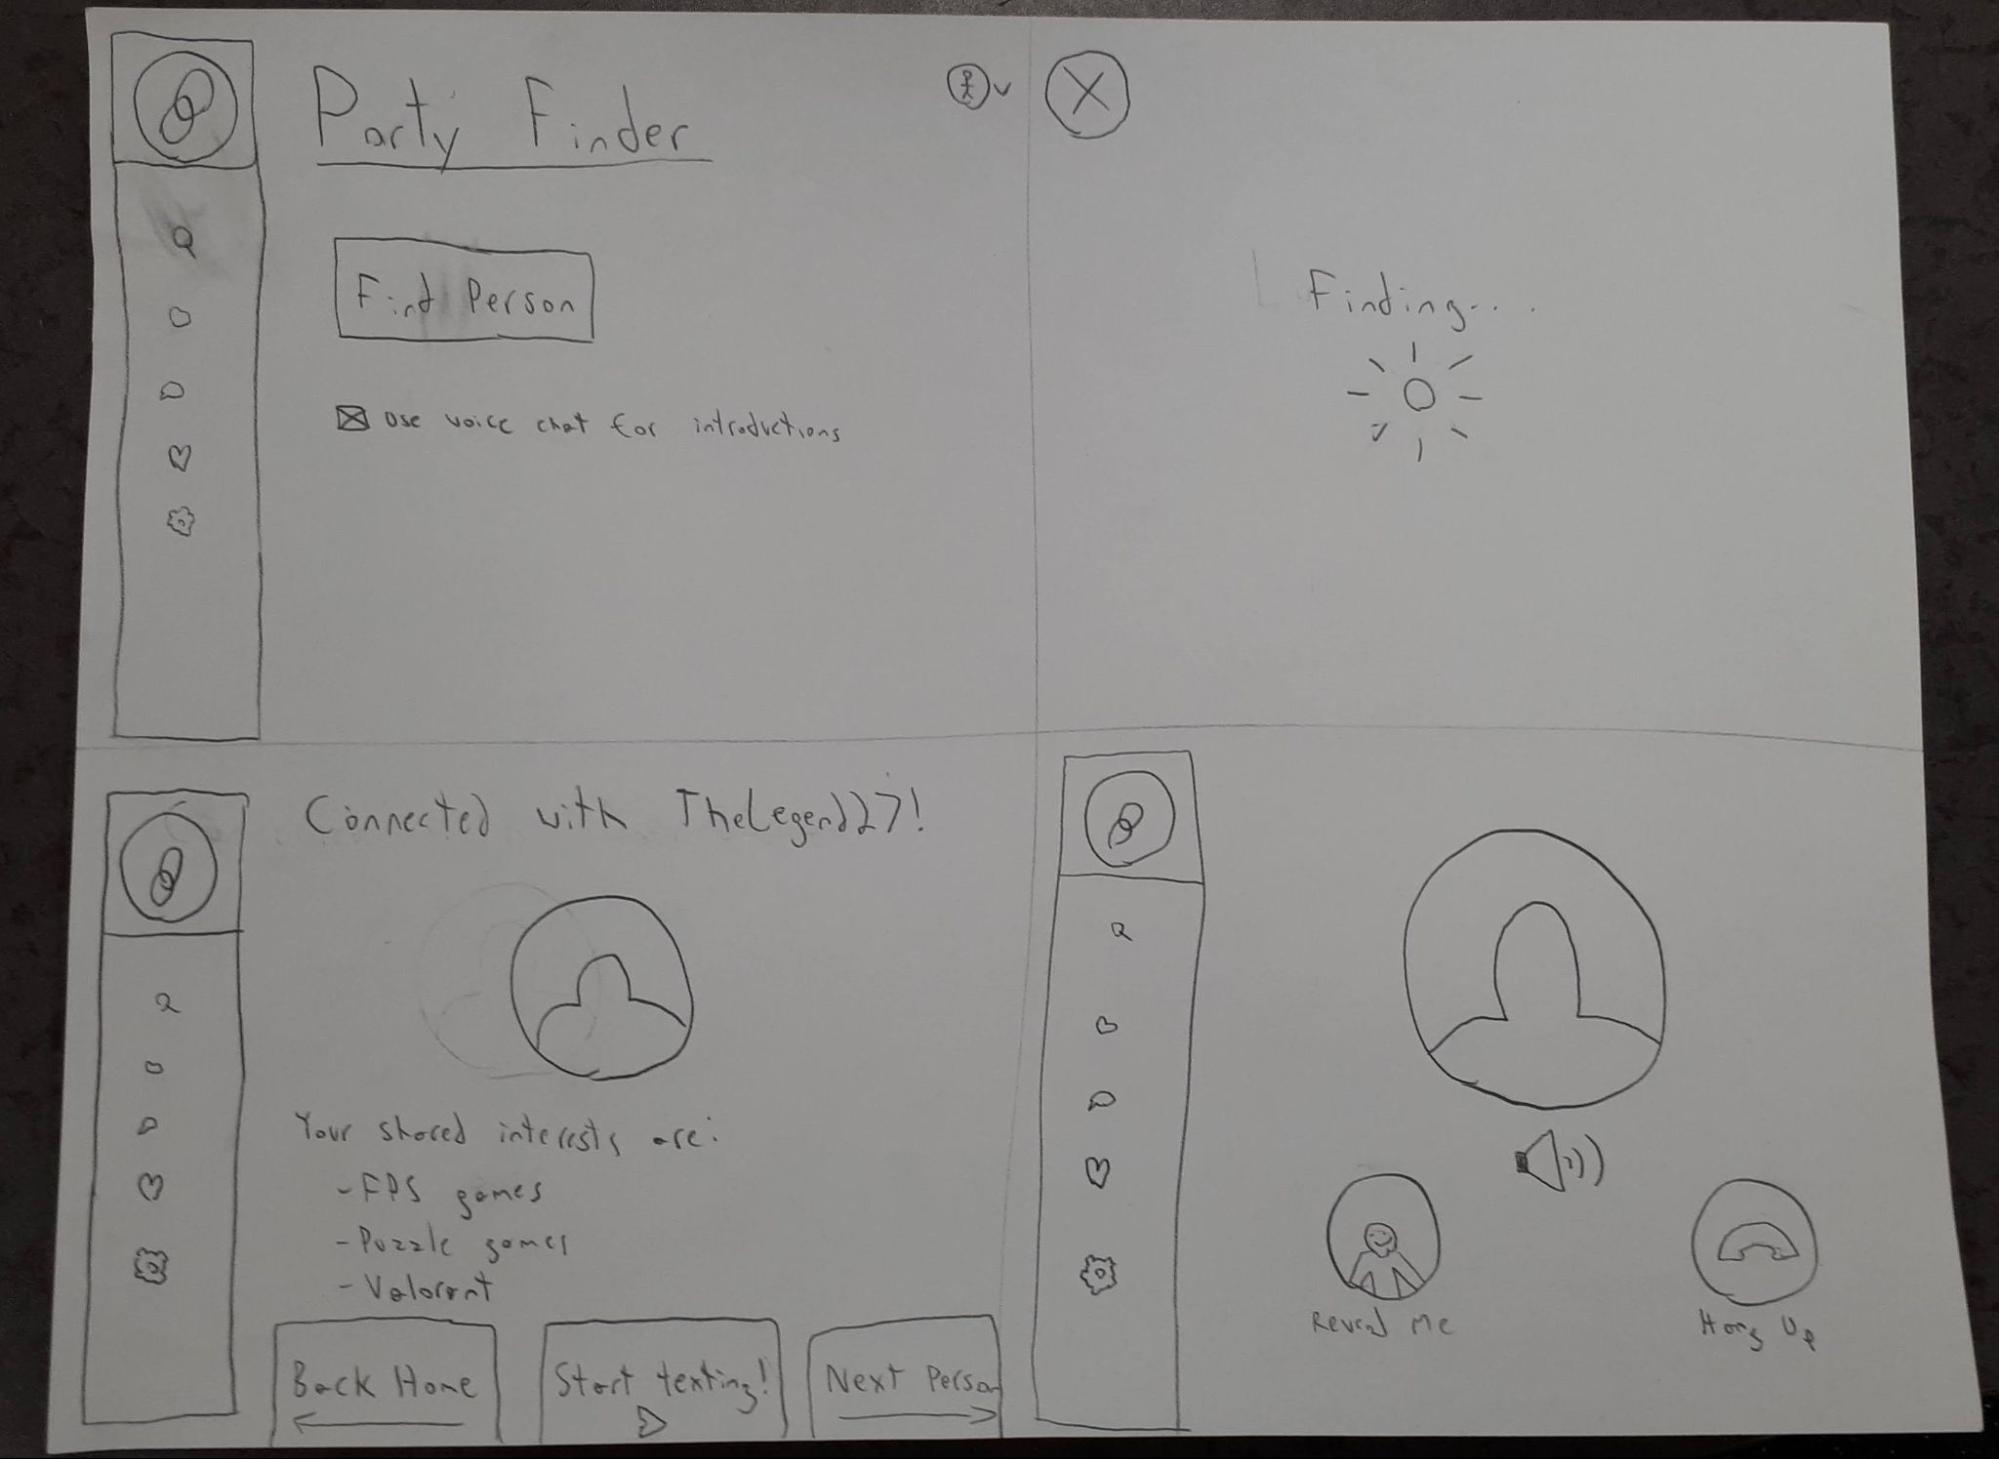 Party Finder
Find Person
Use voice chat for introductions
Finding...
Connected with TheLegend27!
Your shared interests are:
- FPS games
- Puzzle games
- Valorant
Back Home
Start texting!
Next Person
Reveal Me
Hang Up